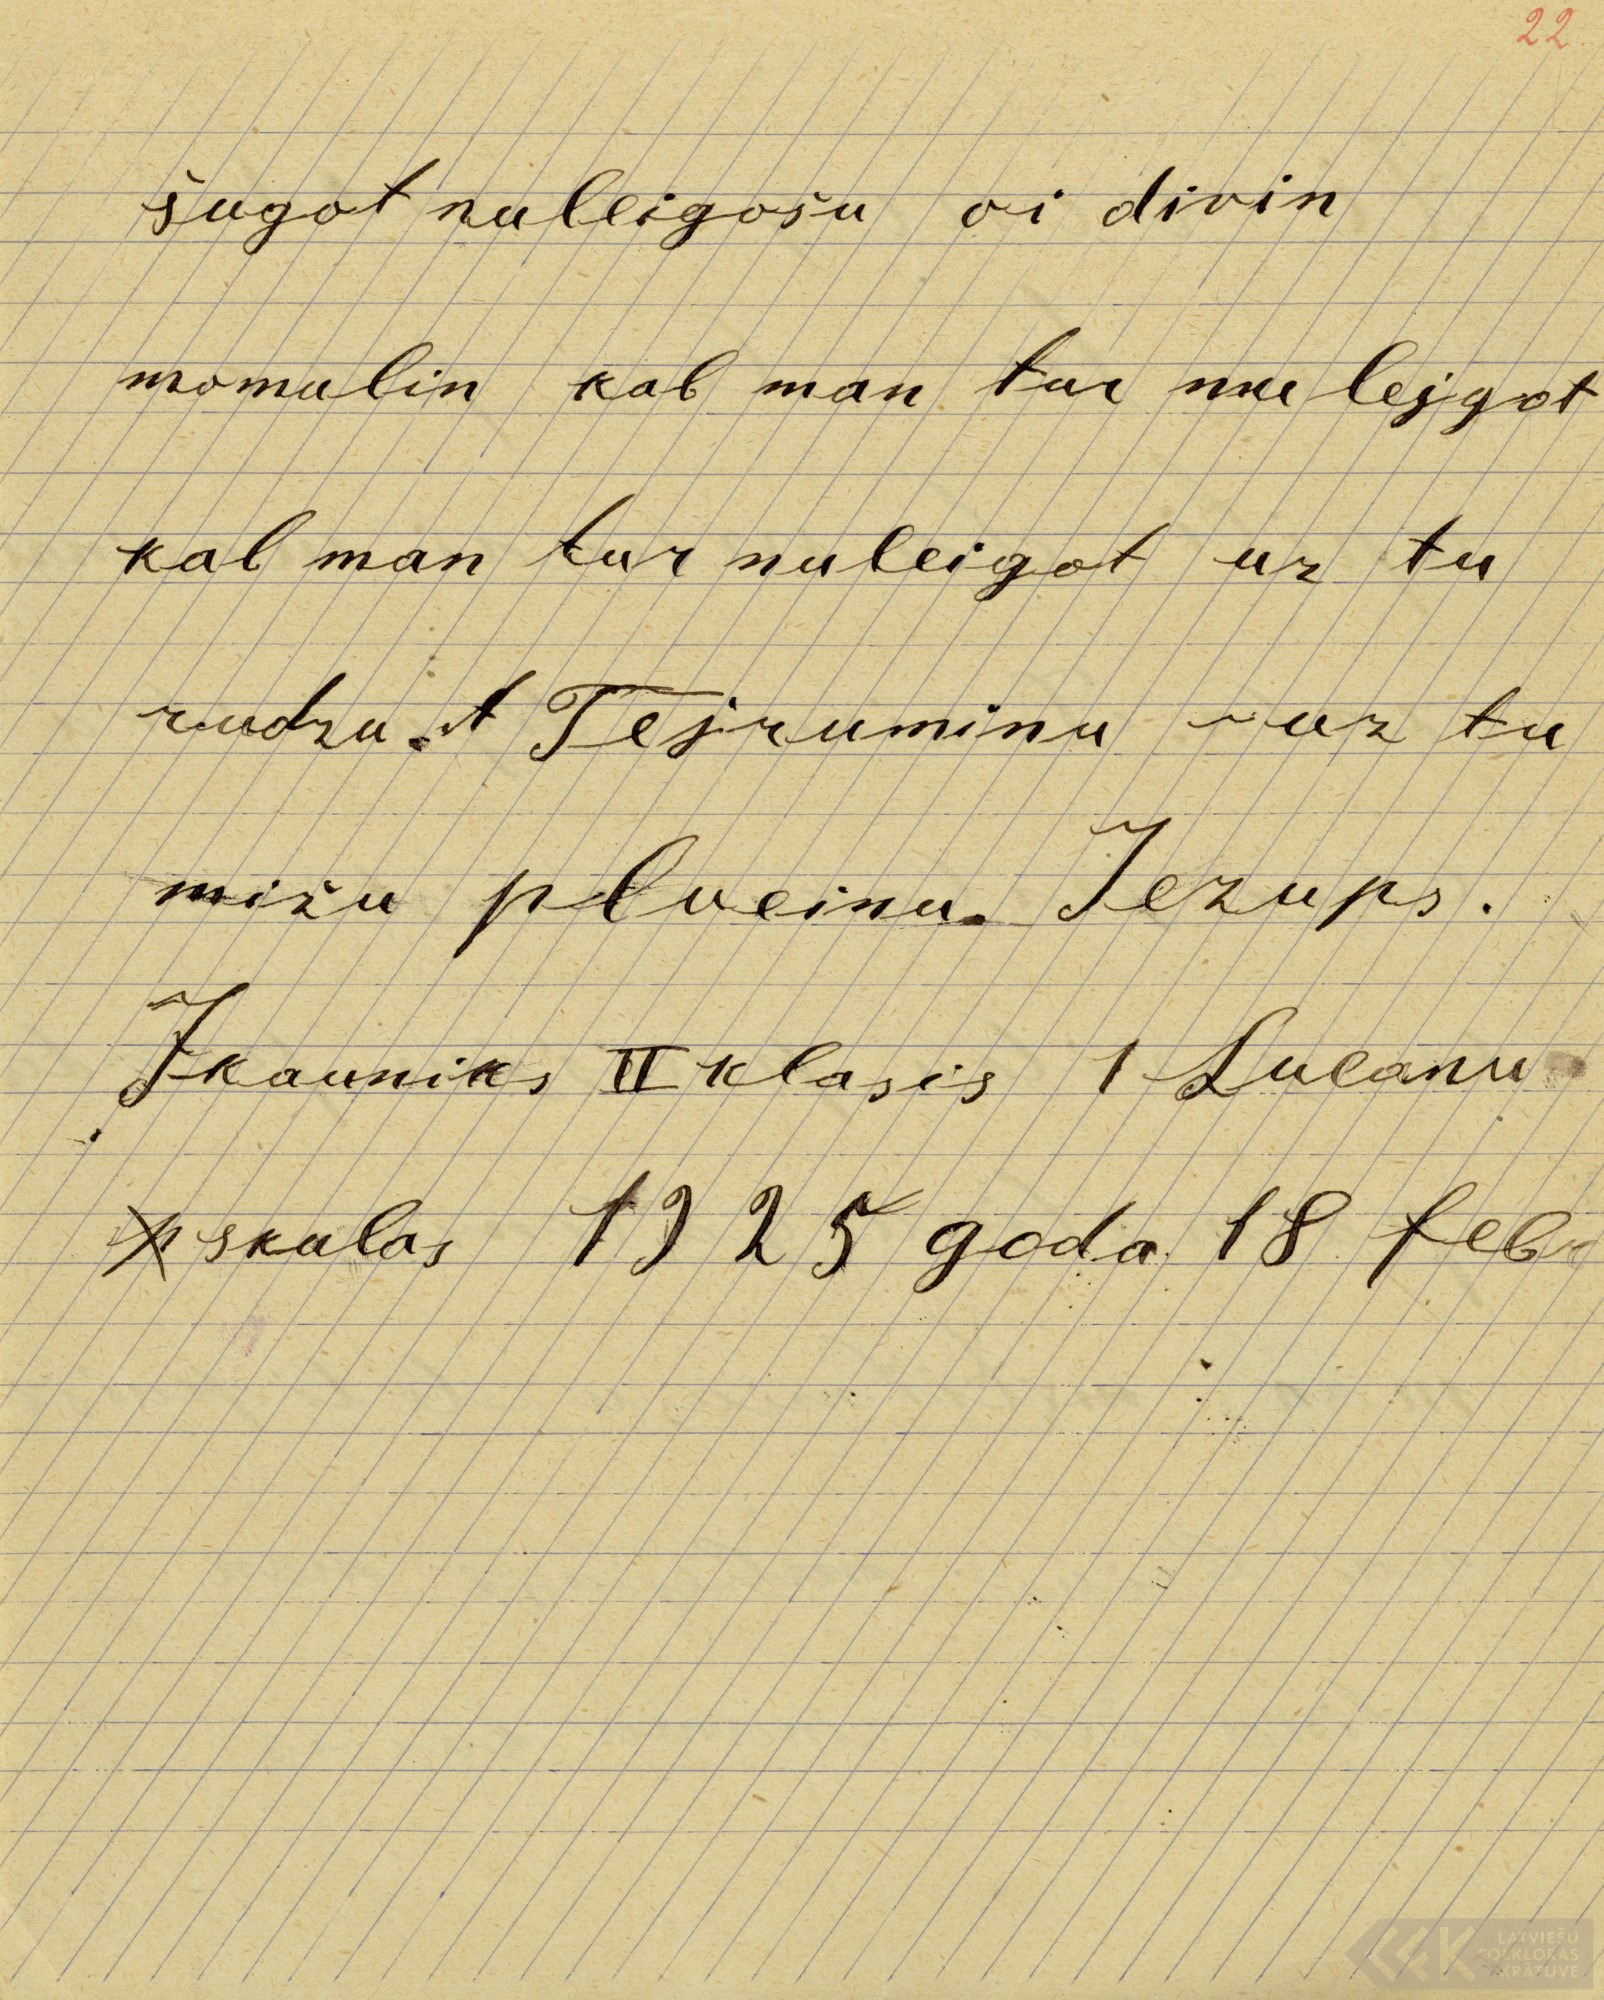 22.
šugot nuleigošu oi divin
momulin kab man tur nu lejgot
kab man tur nuleigot uz tu
rudzu Tejruminu uz tu
mižu plveinu. Jezups.
Ikauniks II klasis 1 Lucanu
p skulas 1925 goda 18 febr
LATVIEŠU
FOLKLORAS
KRĀTUVE